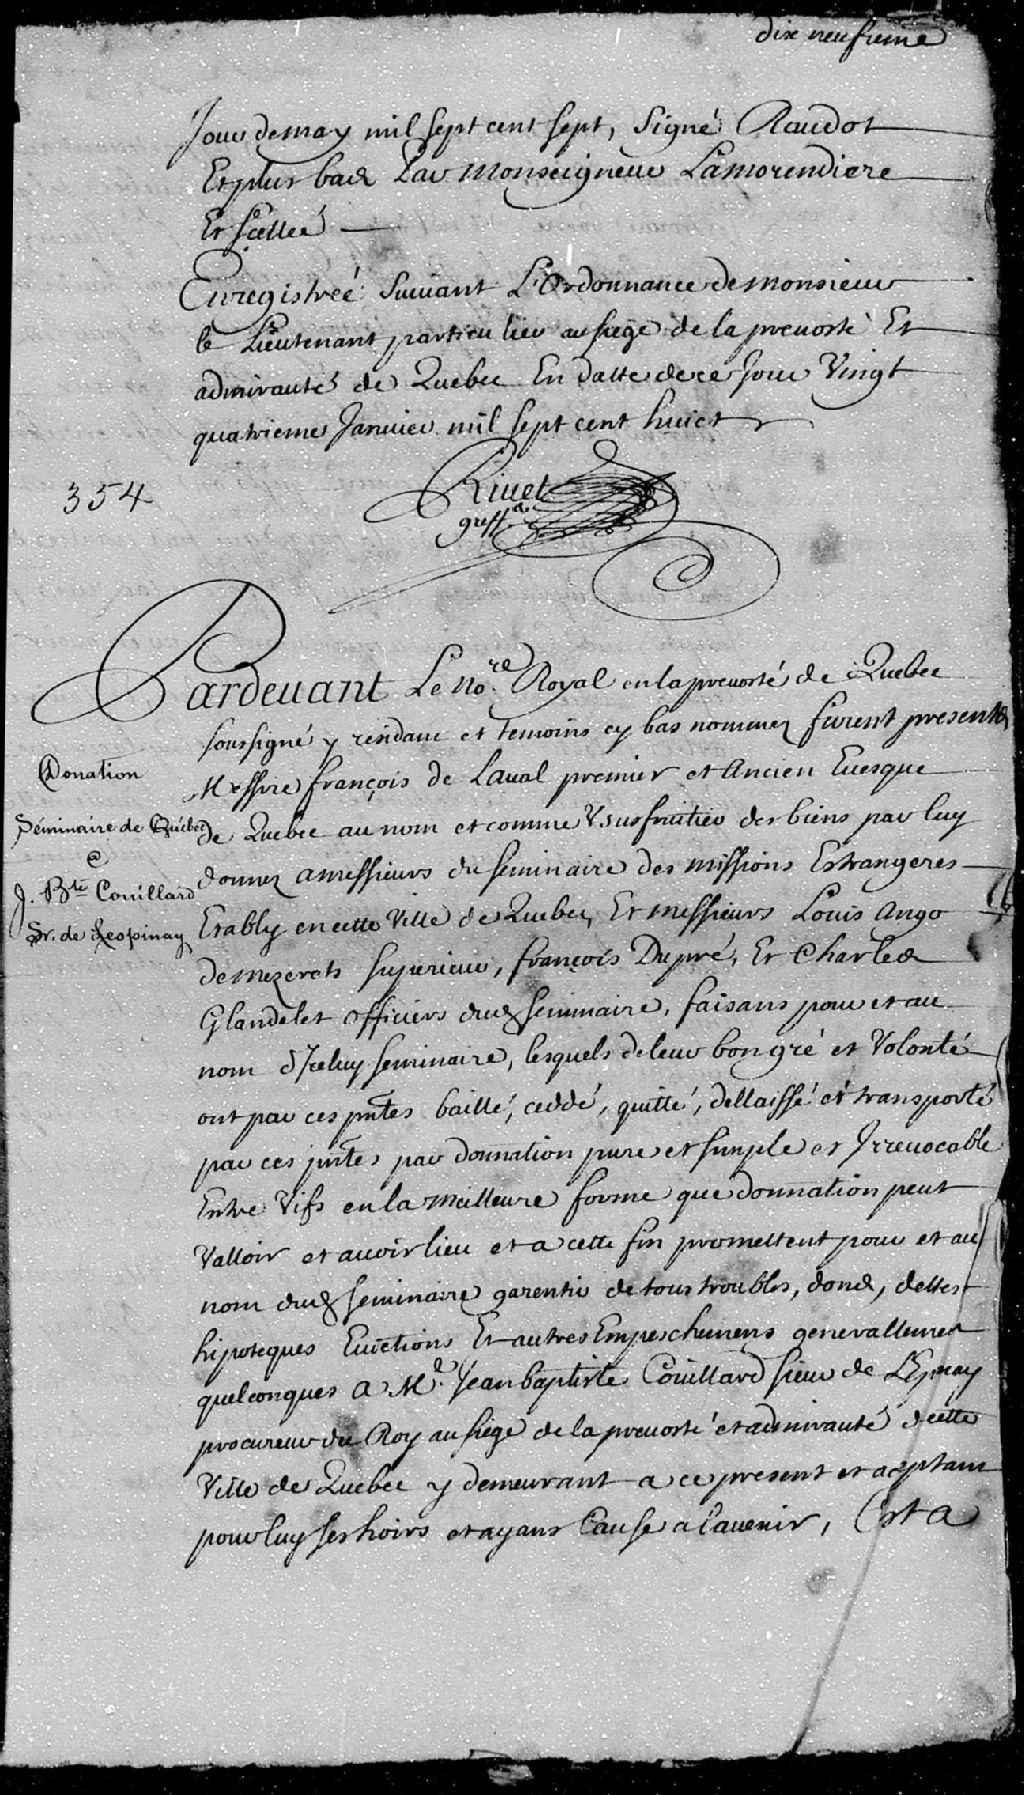 dix neufieme
Jour de may mil sept cent sept, Signé Raudot
Et plus bas Par Monseigneur Lamorendiere
Et scellée
Enregistréé suivant L'Ordonnance de monsieur
le Lieutenant particulier au siege de la prevosté Et
admirauté de Quebec En datte de ce Jour Vingt
quatrieme Janvier mil sept cent huict
Rivet
greff.
354
Pardevant Le no.re Royal en la prevosté de Quebec
soussigné y residant et temoins cy bas nommez furent presents
Messire françois de Laval premier et Ancien Evesque
de Quebec au nom et comme Vsusfruitier des biens par luy
donnez a messieurs du seminaire des missions Estrangeres
Etably en cette Ville de Quebec, Et messieurs Louis Ango
demezerets superieur, françois Dupré, Et Charles
Glandelet officiers dud. seminaire, faisans pour et au
nom d'Iceluy seminaire, lesquels de leur bon gré et Volonté
ont par ces pntes baillé, ceddé, quitté, dellaissé et transporté
par ces pntes par donnation pure et simple et Irrevocable
Entre Vifs en la meilleure forme que donnation peut
Valloir et avoir lieu et a cette fin promettent pour et au
nom dud. seminaire garentir de tous troubles, dons, dettes
hipoteques Evictions Et autres Empeschemens generallement
quelconques a M.e Jean baptiste Coüillard sieur de L'Epinay
procureur du Roy au siege de la prevosté et admirauté de cette
Ville de Quebec y demeurant a ce present et aceptant
pour luy ses hoirs et ayans Cause a l'avenir, Cest a
Donation
Séminaire de Québec
@
J. Bte Couillard
Sr. de Lespinay